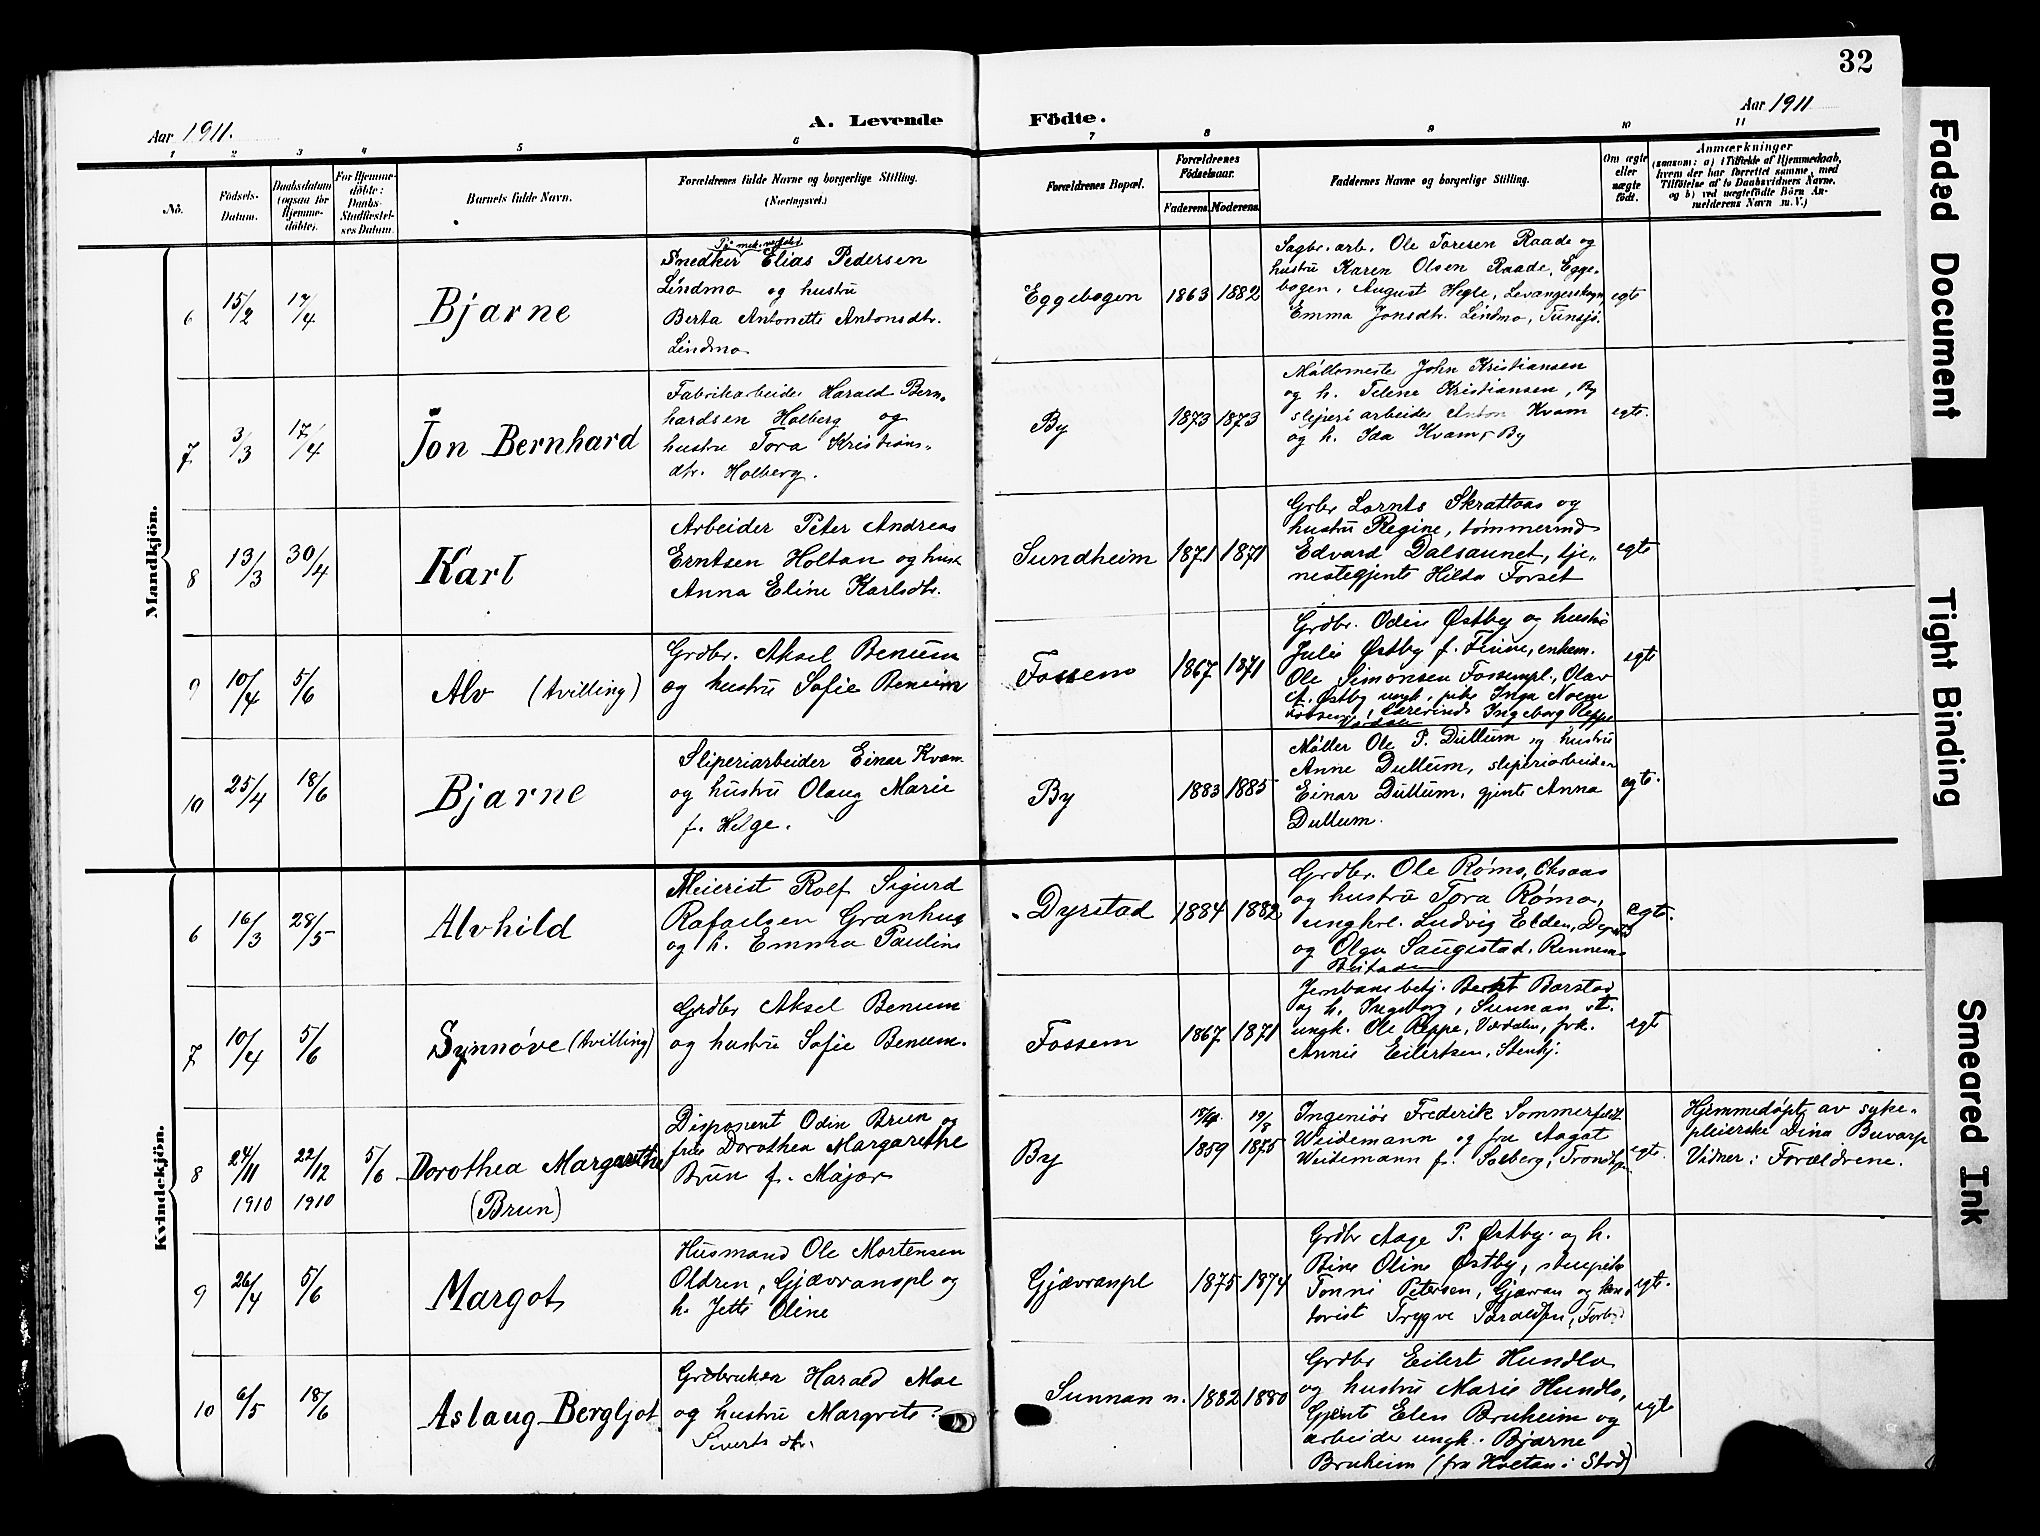 32
Aar 1911.
A. Levende
Fødte.
Aar 1911
1 2 3 4 5 6 7 8 9 10 11
No.
Fødsels-
Datum.
Daabsdatum
(ogsaa for
Hjemme-
døbte).
For Hjemme-
døbte:
Daabs-
Stadfæstel-
ses Datum.
Barnets fulde Navn.
Forældrenes fulde Navne og borgerlige Stilling.
(Næringsvei.)
Forældrenes Bopæl.
Forældrenes
Fødselsaar.
Faderens. Moderens.
Faddernes Navne og borgerlige Stilling.
Om ægte
eller
uægte
født.
Anmærkninger
(saasom: a) i Tilfælde af Hjemmedaab,
hvem der har forrettet samme, med
Tilføielse af to Daabsvidners Navne,
og b) ved uægtefødte Børn An-
melderens Navn m. V.)
Mandkjøn.
6
15/2
17/4
Bjarne
Snedker Elias Pedersen
Lindmo og hustru
Berta Antonette Antonsdtr.
Lindmo
Eggebogen
1863 1882
Sagbr. arb. Ole Toresen Raade og
hustru Karen Olsen Raade, Egge-
bogen, August Hegle, Levangerskogn,
Emma Jonsdtr. Lindmo, Tunsjø.
egte
7
3/3
17/4
Jon Bernhard
Fabrikarbeider Harald Bern-
hardsen Holberg og
hustru Tora Kristians-
dtr. Holberg.
By
1873 1873
Møllemester John Kristiansen
og h. Tilene Kristiansen, By
sliperiarbeider Anton Kvam
og h. Ida Kvam, By
egte.
8
13/3
30/4
Karl
Arbeider Peter Andreas
Erntsen Holtan og hust
Anna Eline Karlsdtr.
Sundheim
1871 1871
Grbr Lornts Skrattaas og
hustru Regine, tømmermd
Edvard Dalsaunet, tje-
nestegjente Hilda Forset
egte
9
10/4
5/6
Alv (tvilling)
Grdbr. Aksel Benum
og hustru Sofie Benum
Fossem
1867 1871
Grdbr. Odin Østby og hustru
Julie Østby f. Finne, enkem.
Ole Simonsen Fossempl., Olav
A. Østby ungk., pike Inga Noem
Fossem, lærerinde Ingeborg Reppe
Værdalen
egte
10
25/4
18/6
Bjarne
Sliperiarbeider Einar Kvam
og hustru Olaug Marie
f. Helge.
By
1883 1885
Møller Ole P. Dullum og hustru
Anne Dullum, sliperiarbeider
Einar Dullum, gjente Anna
Dullum.
egte.
Kvindekjøn.
6
16/3
28/5
Alvhild
Meierist Rolf Sigurd
Rafaelsen Granhus
og h. Emma Pauline
Dyrstad
1884 1882
Grdbr. Ole Rømo, Oksaas
og hustru Tora Rømo,
ungkrl. Ludvig Elden,
og Olga Saugestad, Rennem
Beitaden
egte.
7
10/4
5/6
Synnøve (tvilling)
Grdbr Aksel Benum
og hustru Sofie Benum.
Fossem
1867 1871
Jernbanebetj. Bernt Borstad
og h. Ingeborg, Sunnan st.
ungk. Ole Reppe, Værdalen, frk.
Annie Eilertsen, Stenkj.
egte
8
24/11
1910
22/12
1910
5/6
Dorothea Margarethe
(Brun)
Disponent Odin Brun og
frue Dorothea Margarethe
Brun f. Major
By
1859
19/8
1875
Ingeniør Frederik Sommerfeldt
Weidemann og fru Aagot
Weidemann f. Solberg, Trondhjem
egte.
Hjemmedøpt av syke-
pleierske Dina Buvarp
Vidner: Forældrene.
9
26/4
5/6
Margot
Husmand Ole Mortensen
Oldren, Gjævranspl og
h. Jette Oline
Gjævranpl
1875 1874
Grdbr Aage P. Østby og h.
Bine Oline Østby, stuepike
Tonni Petersen, Gjævran og kon-
torist Trygve Taraldsen,
egte.
10
6/5
18/6
Aslaug Bergljot
Grdbruker Harald Moe
og hustru Margrete
Siverts dtr.
Sunnan n.
1882 1880
Grdbr Eilert Hundlo
og hustru Marie Hundlo,
Gjente Elen Bruheim og
arbeider ungk. Bjarne
Bruheim (fra Hoctan i Stod)
egte
Faded Document
Tight Binding
Smeared Ink